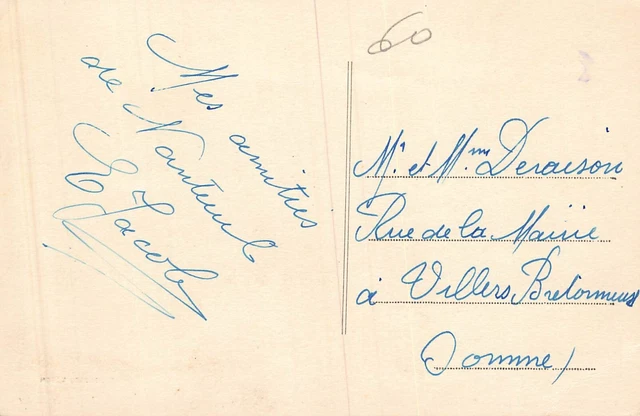 60
Mes amitiés
de Nanteuil
E Jacob
Mr et Mme Deraison
Rue de la Mairie
à Villers Bretonneux
Somme)